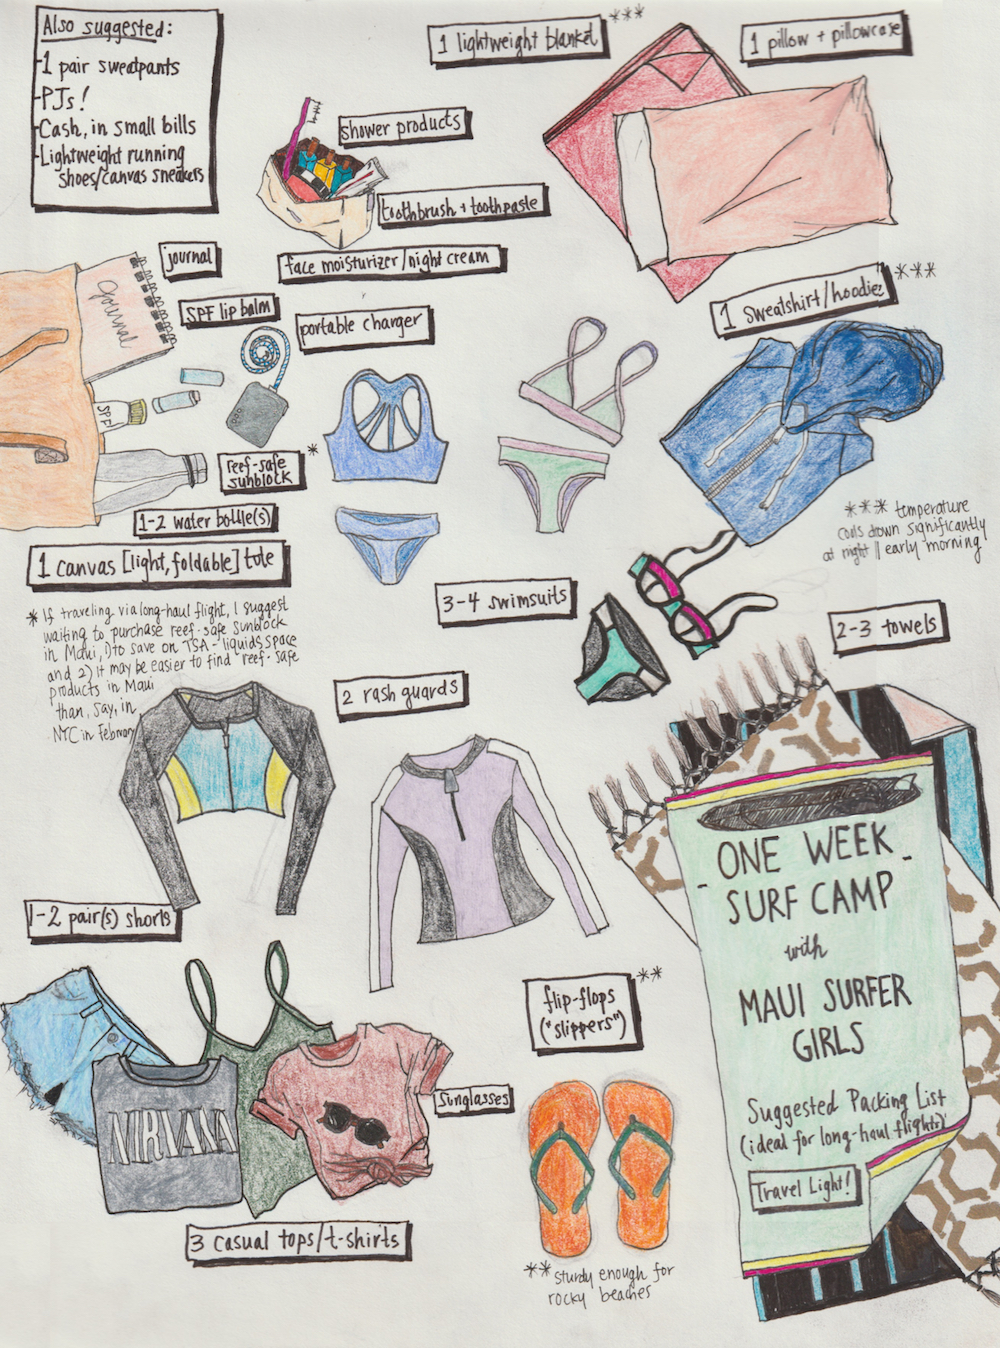 Also suggested:
-1 pair sweatpants
-PJs!
-Cash, in small bills
-Lightweight running
shoes/canvas sneakers
1 lightweight blanket
***
1 pillow + pillowcase
shower products
toothbrush + toothpaste
face moisturizer/night cream
journal
Journal
SPF lip balm
portable charger
1 sweatshirt/hoodie
***
SPF
reef-safe
sunblock
*
1-2 water bottle(s)
1 canvas [light, foldable] tote
*** temperature
cools down significantly
at night || early morning
* If traveling via long-haul flight, I suggest
waiting to purchase reef-safe sunblock
in Maui, 1) to save on TSA-liquids space
and 2) it may be easier to find "reef-safe
products in Maui
than, say, in
NYC in February
3-4 swimsuits
2-3 towels
2 rash guards
ONE WEEK
SURF CAMP
with
MAUI SURFER
GIRLS
Suggested Packing List
(ideal for long-haul flights)
Travel Light!
1-2 pair(s) shorts
NIRVANA
Sunglasses
3 casual tops/t-shirts
flip-flops
("slippers")
**
** sturdy enough for
rocky beaches